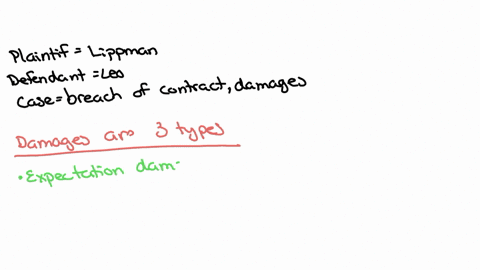 Plaintif = Lippman
Defendant = Leo
Case = breach of contract, damages
Damages are 3 types
• Expectation dam